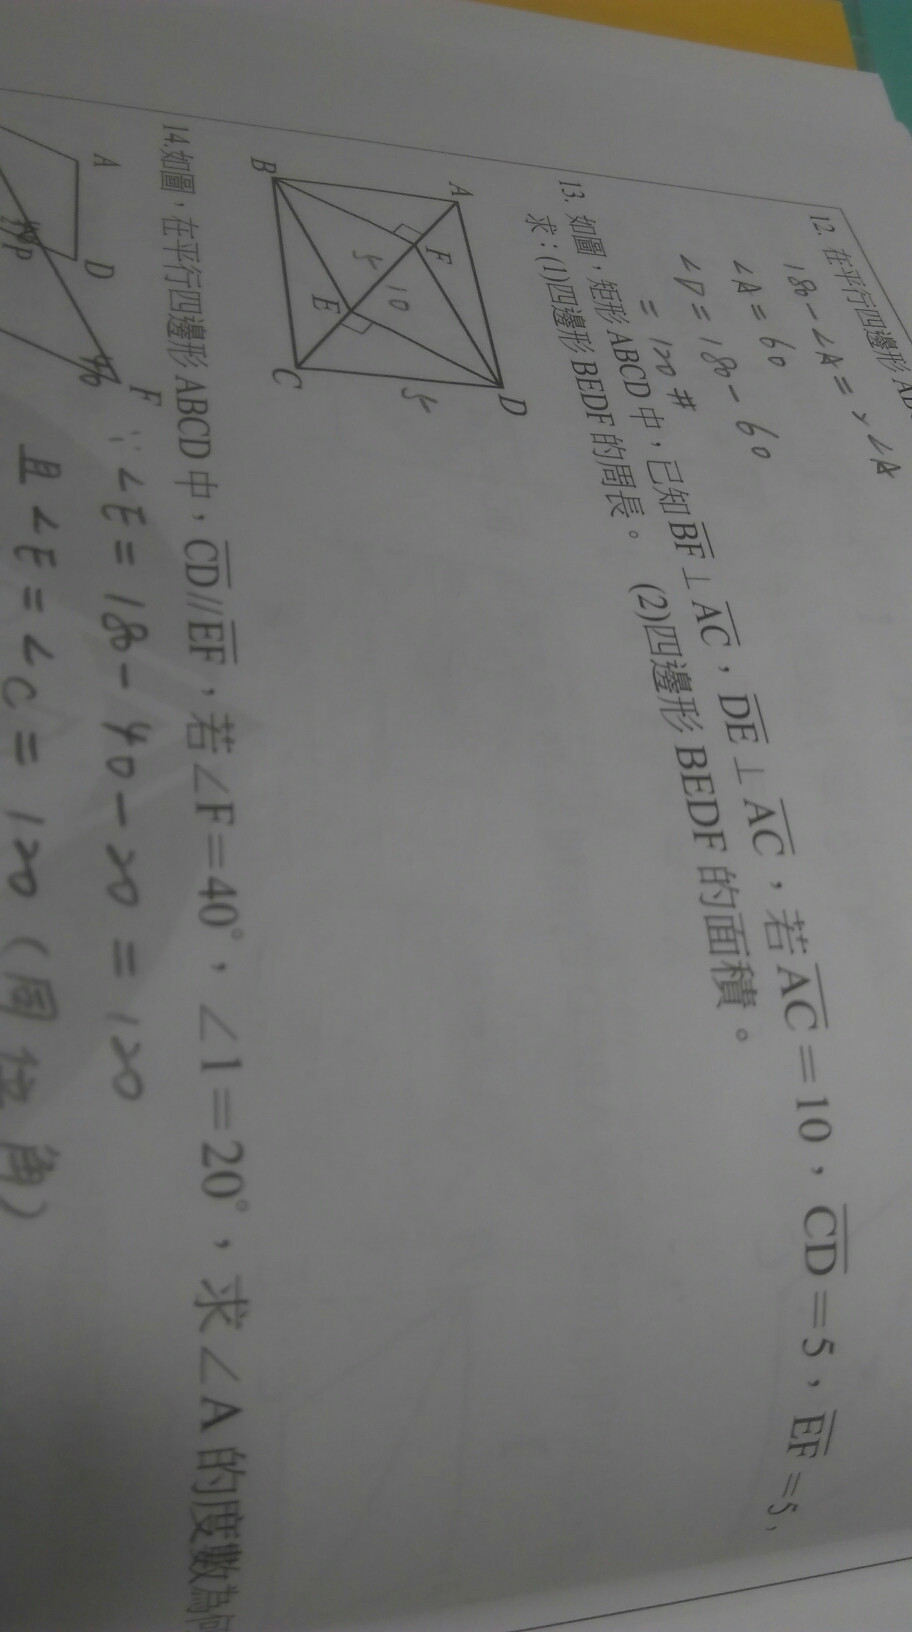 12. 在平行四邊形
180 - ∠A = 2∠A
∠A = 60
∠D = 180 - 60
= 120 #
13. 如圖,矩形 ABCD 中,已知 BF ⊥ AC,DE ⊥ AC,若 AC = 10,CD = 5,EF = 5,
求:(1)四邊形 BEDF 的周長。 (2)四邊形 BEDF 的面積。
A
D
F
5
10
5
B
E
C
14.如圖,在平行四邊形 ABCD 中,CD//EF,若∠F=40°,∠1=20°,求∠A 的度數為
A
D
F
40
P
∵ ∠E = 180 - 40 - 20 = 120
且 ∠E = ∠C = 120 (同位角)